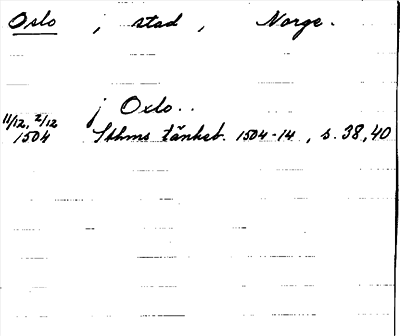 Oslo , stad , Norge.
j Oxlo..
11/12, 2/12
1504 Sthms tänkeb. 1504-14, s. 38, 40